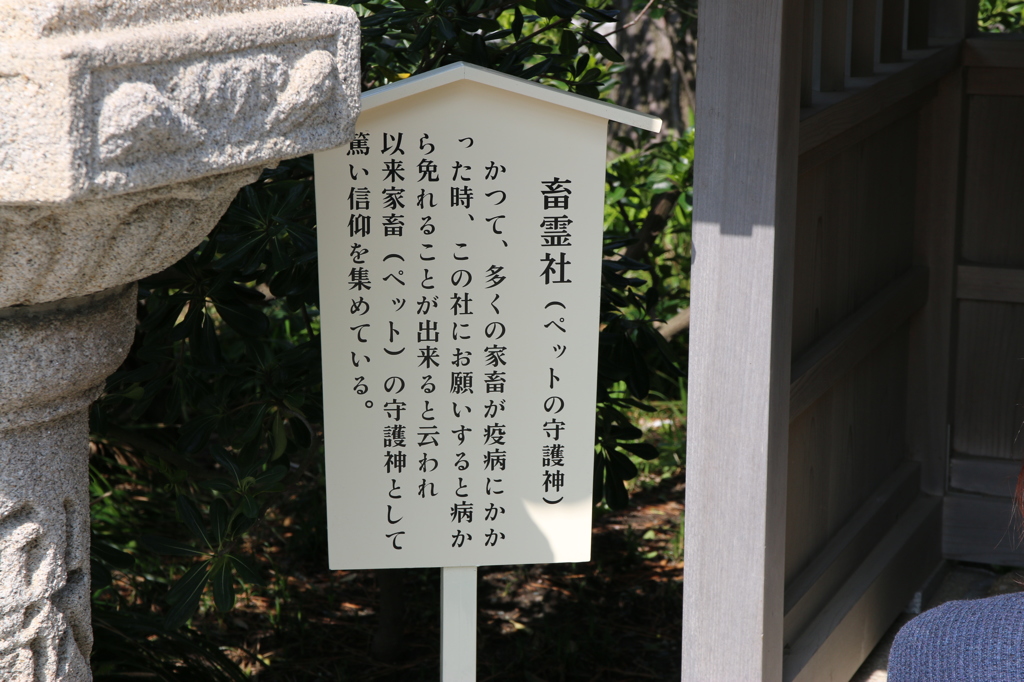 畜霊社（ペットの守護神）
かつて、多くの家畜が疫病にかか
った時、この社にお願いすると病か
ら免れることが出来ると云われ
以来家畜（ペット）の守護神として
篤い信仰を集めている。